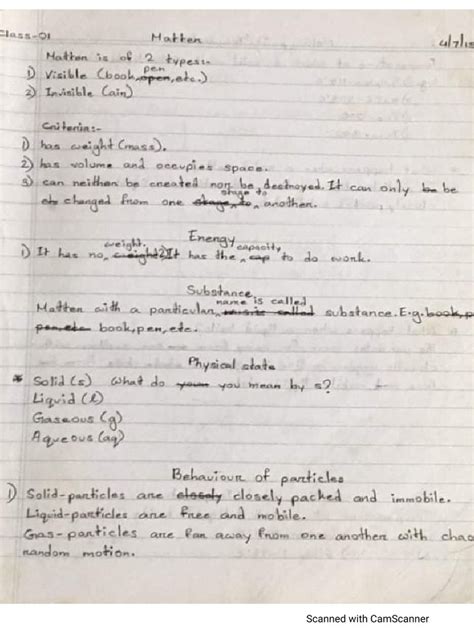 Class-01 Matter 4/7/15
Matter is of 2 types:-
1) Visible (book, pen, etc.)
2) Invisible (air)
Criteria:-
1) has weight (mass).
2) has volume and occupies space.
3) can neither be created nor be destroyed. It can only be
changed from one stage to another.
Energy
1) It has no weight. It has the capacity to do work.
Substance
Matter with a particular name is called substance. E.g. book, p
book, pen, etc.
Physical state
* Solid (s) What do you mean by s?
Liquid (l)
Gaseous (g)
Aqueous (aq)
Behaviour of particles
1) Solid-particles are closely packed and immobile.
Liquid-particles are free and mobile.
Gas-particles are far away from one another with chao
random motion.
Scanned with CamScanner